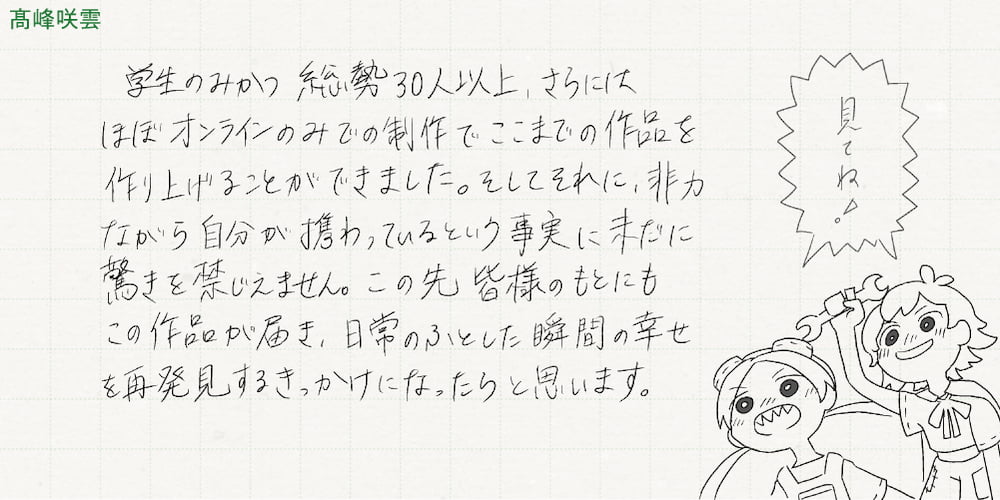 髙峰咲雲
学生のみかつ 総勢30人以上、さらには
ほぼオンラインのみでの制作でここまでの作品を
作り上げることができました。そしてそれに、非力
ながら自分が携わっているという事実に未だに
驚きを禁じえません。この先 皆様のもとにも
この作品が届き、日常のふとした瞬間の幸せ
を再発見するきっかけになったらと思います。
見てね!